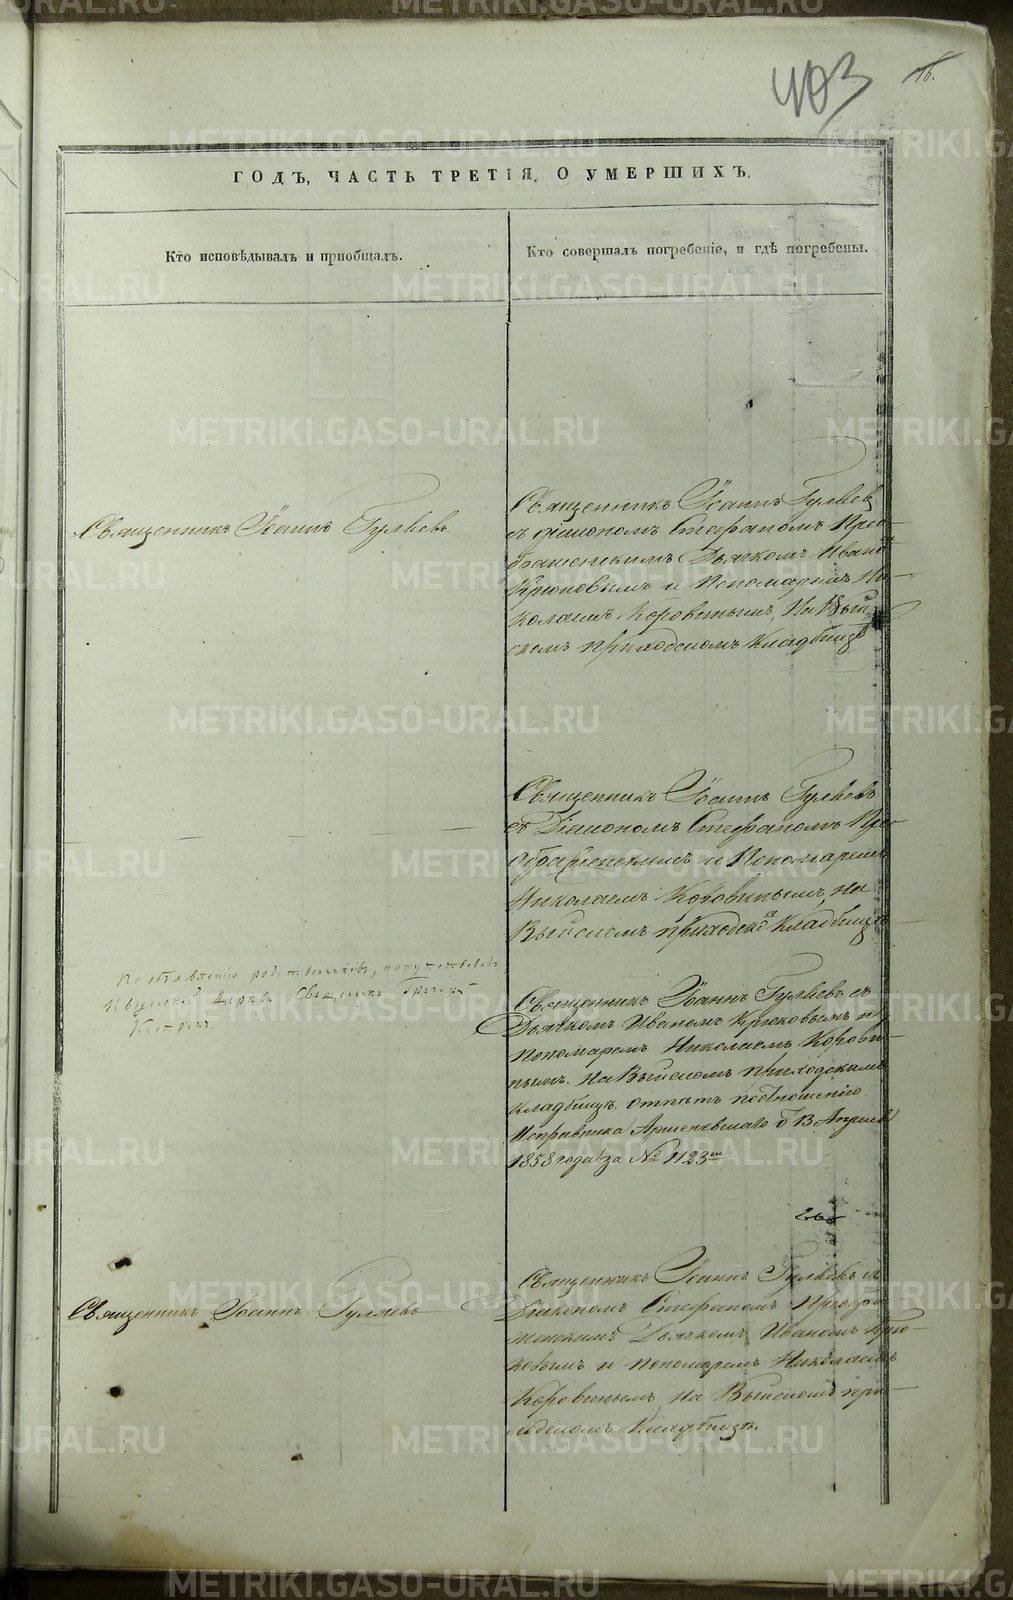 403
16.
ГОДЪ, ЧАСТЬ ТРЕТІЯ, О УМЕРШИХЪ.
Кто исповѣдывалъ и пріобщалъ.
Кто совершалъ погребеніе, и гдѣ погребены.
Священникъ Іоаннъ Гуляевъ
Священникъ Іоаннъ Гуляев
съ діакономъ Стефаномъ Прео-
браженскимъ Дьячкомъ Ивано
Крюковымъ и Пономаремъ Ни-
колаемъ Коровинымъ, На Вый
скомъ приходскомъ кладбищѣ
Священникъ Іоаннъ Гуляевъ
съ Діакономъ Стефаномъ Прео-
ображенскимъ и Пономаремъ
Николаемъ Коровинымъ, на
Выйскомъ приходско кладбищѣ
По объявленію родственниковъ, напутствовалъ
церкви Священникъ Григорій
Священникъ Іоаннъ Гуляевъ съ
Дьячкомъ Иваномъ Крюковымъ и
пономаремъ Николаемъ Корови-
нымъ. На Выйскомъ приходскомъ
кладбищѣ. отпѣтъ по отношенію
Исправника от 13 Апреля
1858 года за № 1123м
Священникъ Іоаннъ Гуляевъ
Священникъ Іоаннъ Гуляевъ съ
Діакономъ Стефаномъ Преобра
женскимъ Дьячкомъ Иваномъ Крю-
ковымъ и пономаремъ Николаемъ
Коровинымъ, на Выйскомъ при-
ходскомъ Кладбищѣ.
METRIKI.GASO-URAL.RU